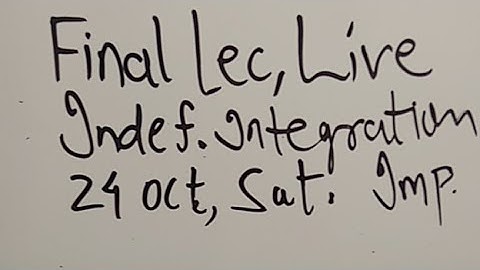 Final Lec, Live
Indef. Integration
24 Oct, Sat. Imp.